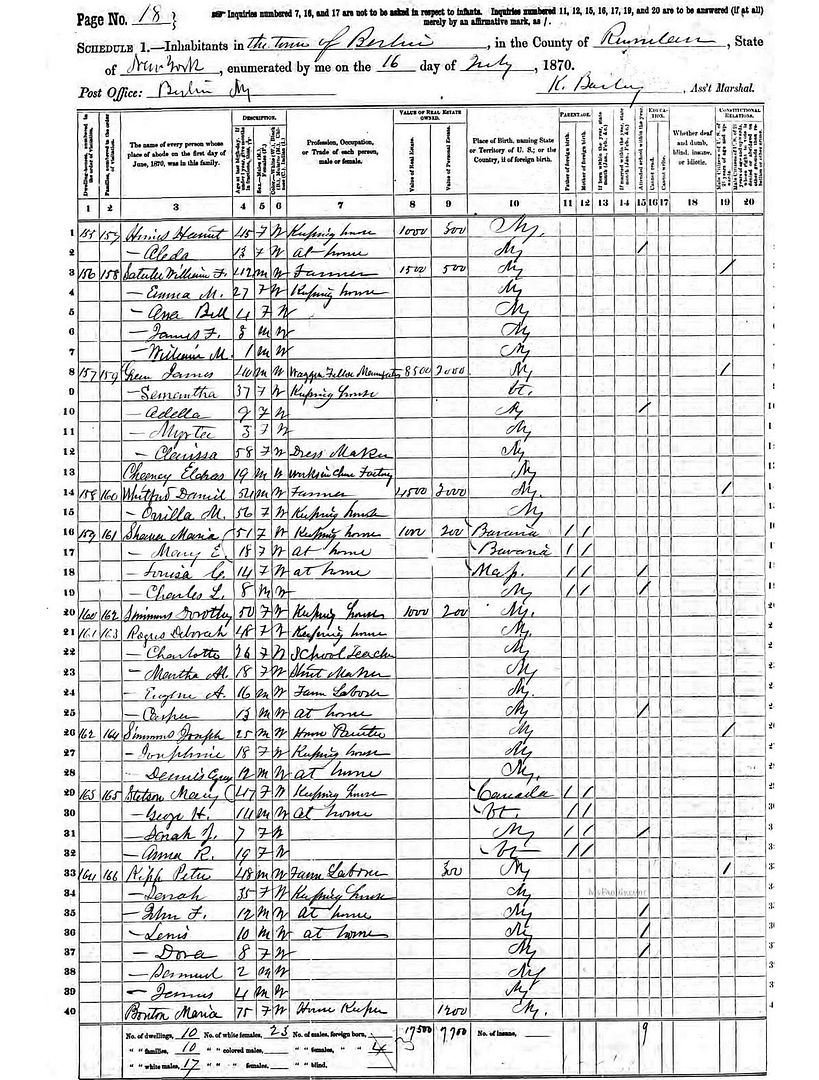 Page No. 18
Inquiries numbered 7, 16, and 17 are not to be asked in respect to infants. Inquiries numbered 11, 12, 15, 16, 17, 19, and 20 are to be answered (if at all)
merely by an affirmative mark, as /.
SCHEDULE 1.—Inhabitants in the town of Berlin, in the County of Rensselaer, State
of New York, enumerated by me on the 16 day of July, 1870.
Post Office: Berlin Ny K. Bailey, Ass't Marshal.
DESCRIPTION. VALUE OF REAL ESTATE OWNED. PARENTAGE. EDUCATION. CONSTITUTIONAL RELATIONS.
Dwelling-houses, numbered in the order of visitation. Families, numbered in the order of visitation. The name of every person whose place of abode on the first day of June, 1870, was in this family. Profession, Occupation, or Trade of each person, male or female. Value of Real Estate. Value of Personal Estate. Place of Birth, naming State or Territory of U. S.; or the Country, if of foreign birth. Father of foreign birth. Mother of foreign birth. Attended school within the year. Cannot read. Cannot write. Whether deaf and dumb, blind, insane, or idiotic.
1 2 3 4 5 6 7 8 9 10 11 12 13 14 15 16 17 18 19 20
1 155 157 Harriet 45 F W Keeping house 1000 500 Ny.
2 — Aleda 13 F W at home Ny /
3 156 158 William F. 42 M W Farmer 1500 500 Ny /
4 — Emma M. 27 F W Keeping house Ny
5 — Ana Bell 4 F W Ny
6 — James F. 3 M W Ny
7 — William M. 1 M W Ny
8 157 159 Green James 40 M W Waggon Felloe 8500 2000 Ny /
9 — Semantha 37 F W Keeping house Vt.
10 — Adella 9 F W Ny /
11 — Myrta 3 F W Ny
12 — Clarissa 58 F W Dress Maker Ny
13 Cheeney 19 M W Works in Factory Ny
14 158 160 Whitford Daniel 52 M W Farmer 4500 3000 Ny. /
15 — Orrilla M. 56 F W Keeping house Ny
16 159 161 Maria 51 F W Keeping house 1000 200 Bavaria / /
17 — Mary E. 18 F W at home Bavaria / /
18 — Louisa C. 14 F W at home Mass. / / /
19 — Charles L. 8 M W Ny / / /
20 160 162 Simmons Dorothy 50 F W Keeping house 1000 200 Ny.
21 161 163 Deborah 48 F W Keeping house Ny.
22 — Charlotte 26 F W School Teacher Ny
23 — Martha M. 18 F W Shirt Maker Ny
24 — Eugene A. 16 M W Farm Laborer Ny.
25 — Casper 13 M W at home Ny /
26 162 164 Simmons Joseph 25 M W House Painter Ny /
27 — Josephine 18 F W Keeping house Ny
28 Dennis 12 M W at home Ny.
29 163 165 Stetson Mary 47 F W Keeping house Canada / /
30 — George H. 14 M W at home Vt. / /
31 — Sarah J. 7 F W Ny / / /
32 — Anna R. 19 F W Vt / /
33 164 166 Kipp Peter 48 M W Farm Laborer 300 Ny /
34 — 35 F W Keeping house Ny
35 — John F. 12 M W at home Ny /
36 — Lewis 10 M W at home Ny /
37 — Dora 8 F W Ny /
38 — Samuel 2 M W Ny
39 — 4 M W Ny
40 Maria 75 F W House Keeper 1200 Ny.
No. of dwellings, 10 No. of white females, 23 No. of males, foreign born, 17500 7700 No. of insane, 9
" " families, 10 " " colored males, " " females, " " 4
" " white males, 17 " " " females, " " blind,